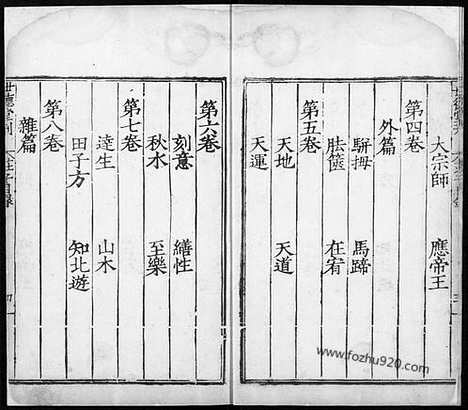 大宗師　應帝王
第四卷
外篇
駢拇　馬蹄
胠篋　在宥
第五卷
天地　天道
天運
第六卷
刻意　繕性
秋水　至樂
第七卷
達生　山木
田子方　知北遊
第八卷
雜篇
世德堂刊
四
www.fozhu920.com